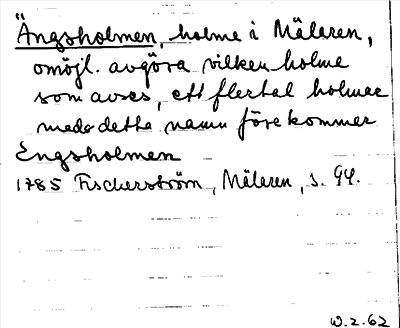 "Ängsholmen, holme i Mälaren,
omöjl. avgöra vilken holme
som avses, ett flertal holmar
med detta namn förekommer
Engsholmen
1785 Fischerström, Mälaren, s. 94.
W.Z.62